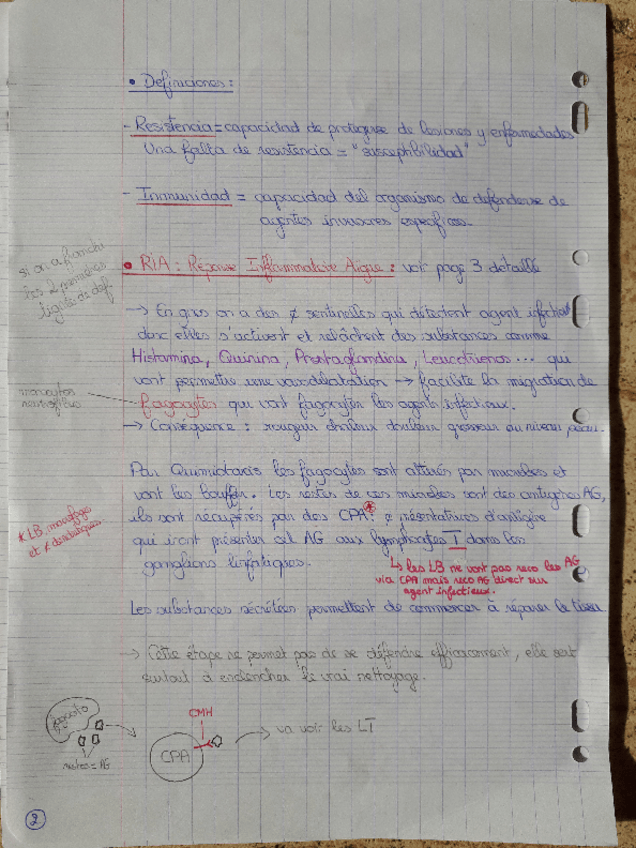 • Definiciones :
- Resistencia = capacidad de protegerse de lesiones y enfermedades
Una falta de resistencia = "susceptibilidad"
- Inmunidad = capacidad del organismo de defenderse de
agentes invasores especificos.
si on a franchi
les 2 premières
lignes de def
• RIA : Réponse Inflammatoire Aigue : voir page 3 détaillé
→ En gros on a des ¢ sentinelles qui détectent agent infectieux
donc elles s'activent et relâchent des substances comme
Histamina, Quinina, Prostaglandina, Leucotrienos... qui
vont permettre une vasodilatation → facilite la migration de
monocytos
neutrofilos
fagocytes qui vont fagocyter les agents infectieux.
→ Conséquence : rougeur chaleur douleur grosseur au niveau peau.
Par Quimiotaxis les fagocytes sont attirés par microbes et
vont les bouffer. Les restes de ces microbes sont des antigènes AG,
* LB, macrofages
et ¢ dendritiques
ils sont récupérés par des CPA* ¢ présentatrices d'antigène
qui iront présenter cet AG aux lymphocytes T dans les
ganglions linfatiques.
↳ les LB ne vont pas reco les AG
via CPA mais reco AG direct sur
agent infectieux.
Les substances sécrétées permettent de commencer à réparer le tissu
→ Cette étape ne permet pas de se défendre efficacement, elle sert
surtout à enclencher le vrai nettoyage.
fagocito
restes = AG
CMH
CPA
→ va voir les LT
2